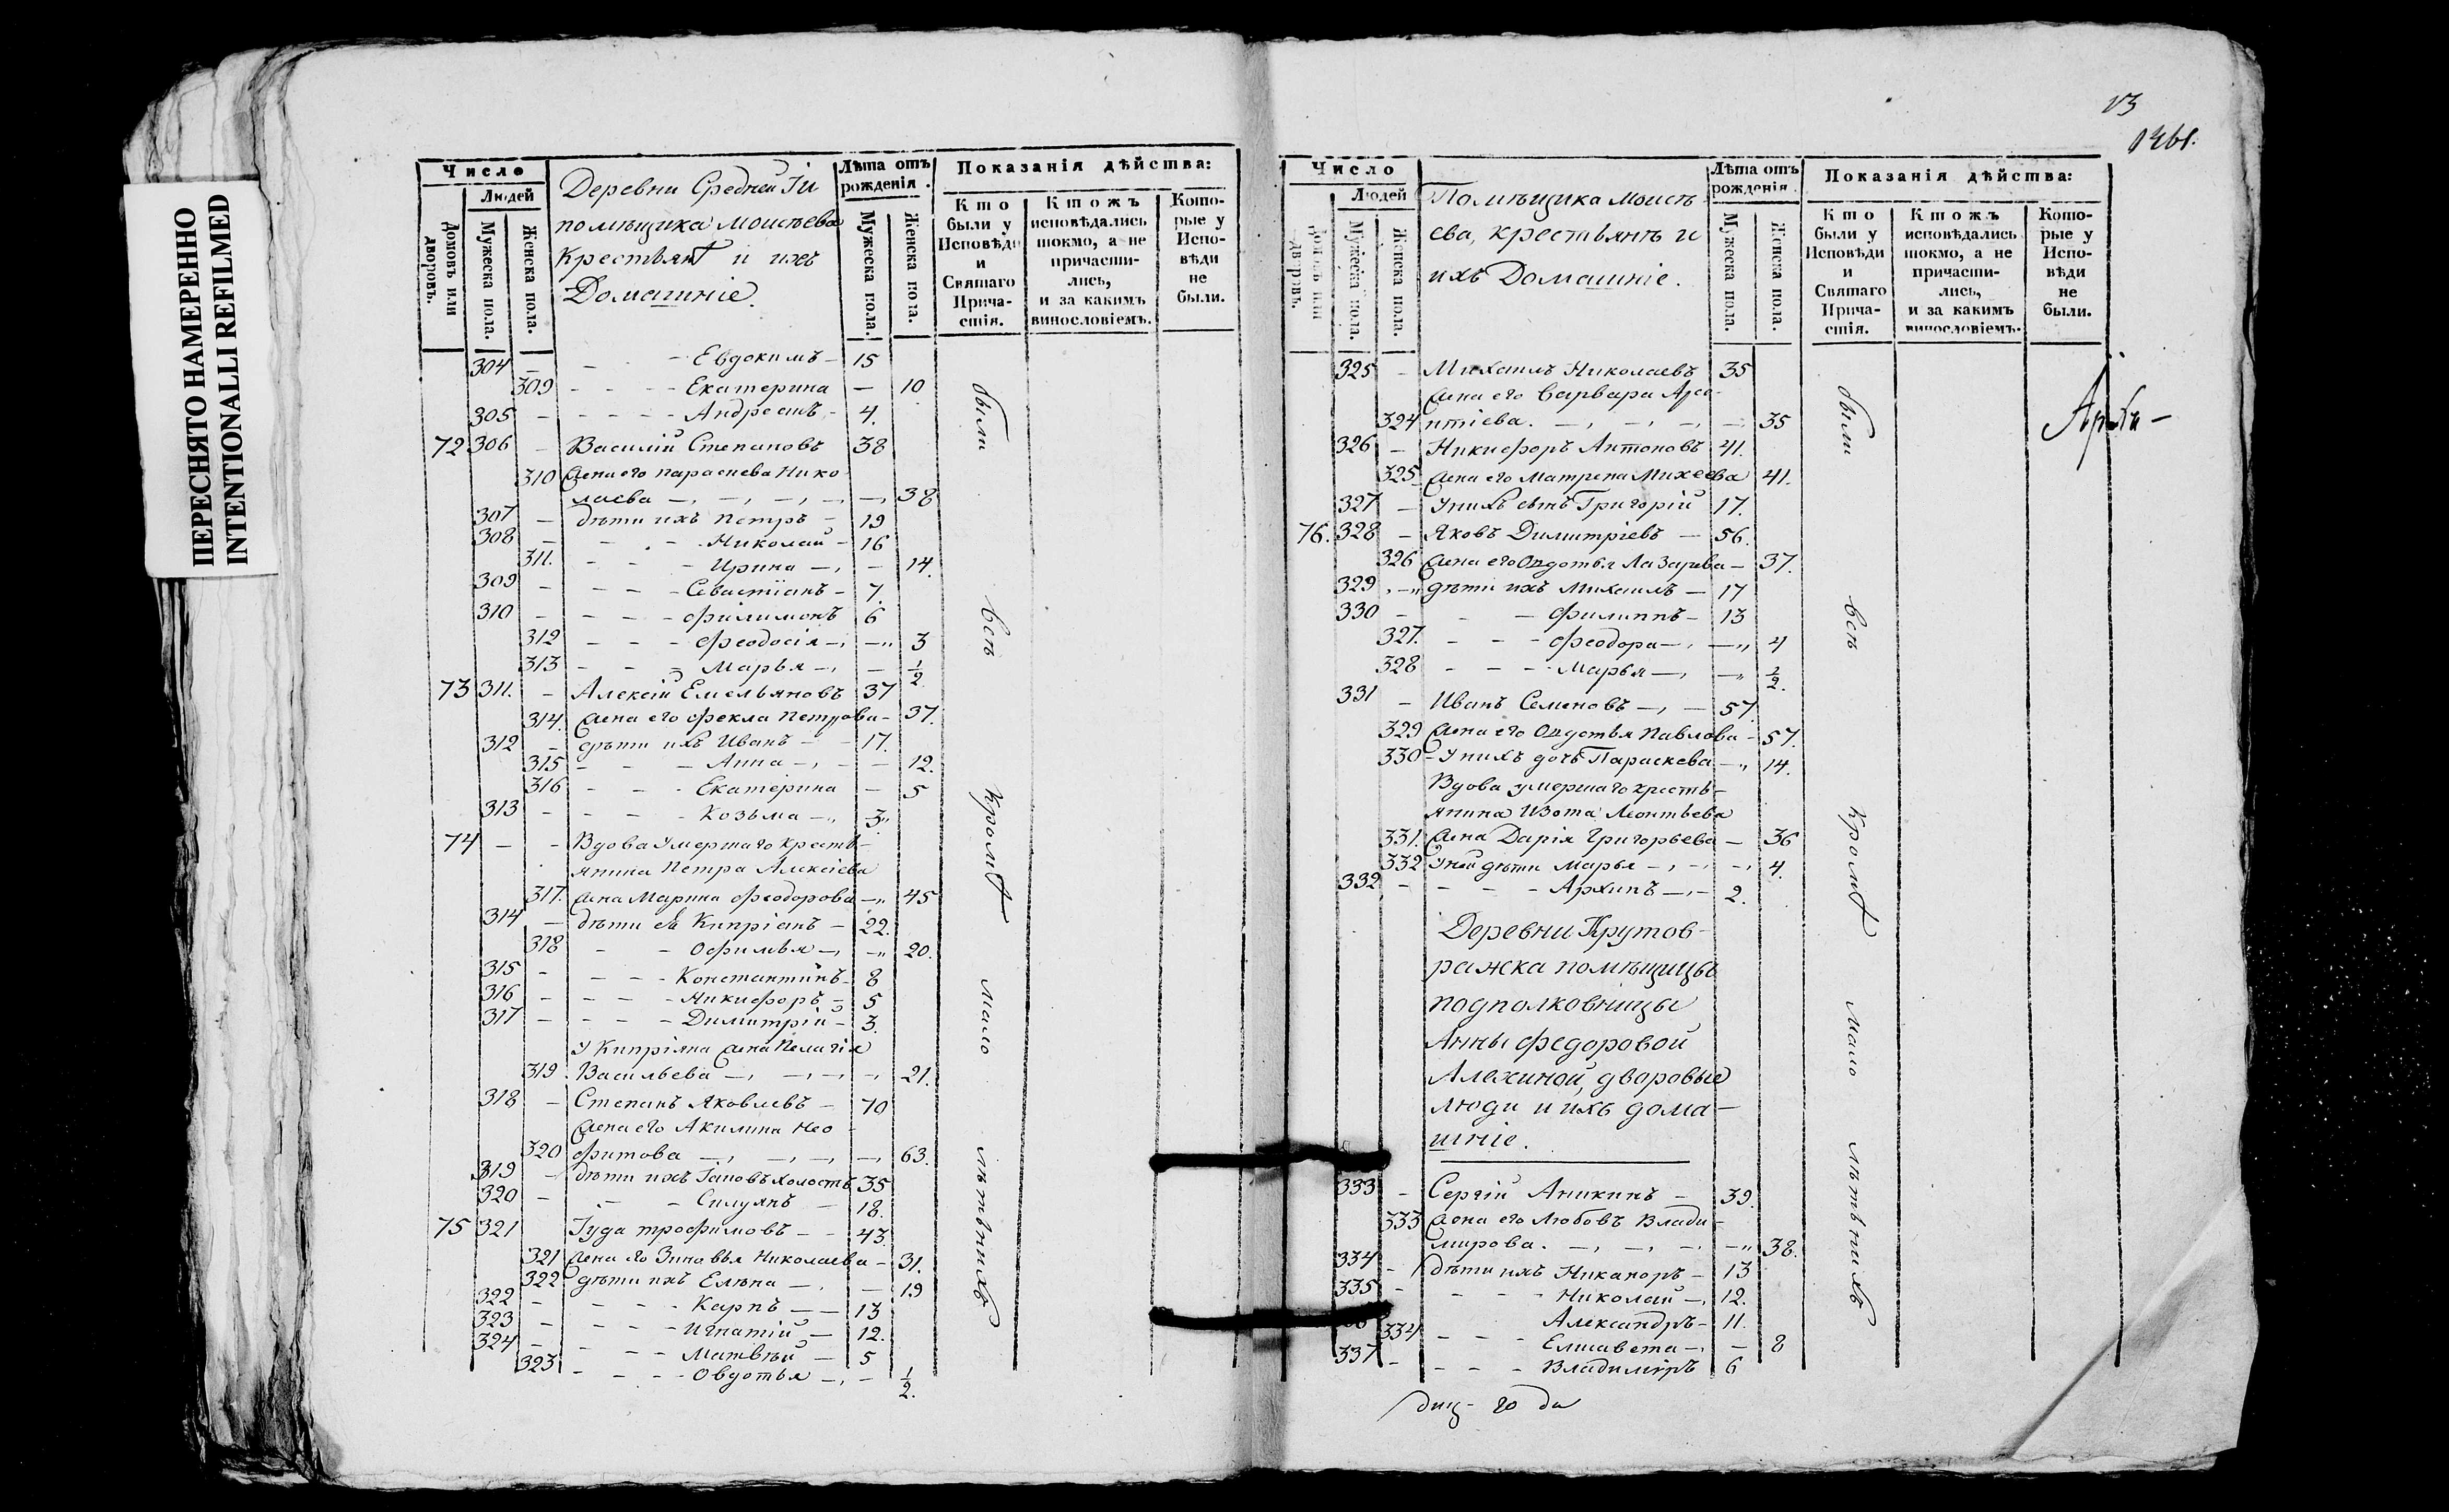 ПЕРЕСНЯТО НАМЕРЕННО
INTENTIONALLI REFILMED
Число
Людей
Домовъ или дворовъ.
Мужеска пола.
Женска пола.
Деревни Средней
помѣщика Моисѣева
Крестьянѣ и ихъ
Домашніе.
Лѣта отъ рожденія.
Мужеска пола.
Женска пола.
Показанія дѣйства:
Кто были у Исповѣди и Святаго Причастія.
Ктожъ исповѣдались токмо, а не причастились, и за какимъ винословіемъ.
Которые у Исповѣди не были.
304 - - - Евдокимъ - 15
309 - - - - Екатерина - 10
305 - - - - - Андреанъ - 4.
72 306 - Василій Степановъ 38
310 жена его Параскева Нико
лаева -, -, -, -, -, 38
307 - дѣти ихъ Петръ - 19
308 - - - Николай - 16
311. - - - Ирина -, - 14.
309 - - - - Севастіанъ - 7.
310 - - - - Филимонъ 6
312 - - - Феодосія -, -„ 3
313 - - - Марья -, - 1/2
73 311. - Алексій Емельяновъ 37
314. жена его Фекла Петрова - 37.
312 - дѣти ихъ Иванъ - - 17.
315 - - - Анна -, - - 12.
316 - - - Екатерина - 5
313 - - - - Козьма -„ 3„
74 - - Вдова умершаго кресть-
янина Петра Алексіева
317. жена Марина Феодорова -„ 45
314 - дѣти ея Кипріанъ - 22.
318 - - Офимья -, -„ 20.
315 - - - - Константинъ - 8
316 - - - - Никифоръ - 5
317 - - - - Димитрій - 3.
У Кипріяна жена Пелагія
319. Васильева -, -, -, -, 21.
318 - Степанъ Яковлевъ - 70
жена его Акилина Нео-
320 фитова -, -, -, -, 63.
319 - дѣти ихъ Іаковъ холостъ 35
320 - - - Силуянъ - 18.
75 321 Іуда Трофимовъ - - 43.
321 жена его Зиновья Николаева - 31.
322 дѣти ихъ Елѣна -, - 19
322 - - - - Карпъ - - 13
323 - - - - Игнатій - 12.
324 - - - - Матвѣй - 5
323 - - - - Овдотья -, - 1/2.
были
всѣ
Кромѣ
мало
лѣтнихъ
Число
Людей
Домовъ или дворовъ.
Мужеска пола.
Женска пола.
Помѣщика Моисѣ
ева, крестьянъ и
ихъ Домашніе.
Лѣта отъ рожденія.
Мужеска пола.
Женска пола.
Показанія дѣйства:
Кто были у Исповѣди и Святаго Причастія.
Ктожъ исповѣдались токмо, а не причастились, и за какимъ винословіемъ.
Которые у Исповѣди не были.
325 - Михаилъ Николаевъ 35
жена его Варвара Арсе-
324 нтіева. -, -, -, - 35
326 - Никифоръ Антоновъ 41.
325 жена его Матрена Михеева 41.
327 - У нихъ сынъ Григорій 17.
76. 328 - Яковъ Димитріевъ - 56.
326 жена его Овдотья Лазарева - 37.
329 - дѣти ихъ Михаилъ - 17
330 - - - Филиппъ - 13
327. - - - Феодора -, -„ 4
328 - - - - Марья -, -„ 1/2.
331 - Иванъ Семеновъ -, - 57.
329 жена его Овдотья Павлова - 57.
330 - У нихъ дочь Параскева -„ 14.
Вдова умершаго кресть-
янина Изота Леонтьева
331. жена Дарія Григорьева - 36
332 У ней дѣти Марья -, -, -, 4.
332 - - - - Архипъ -, - 2.
Деревни Крутов-
ражска помѣщицы
подполковницы
Анны Федоровой
Алехиной, дворовые
люди и ихъ дома-
шніе.
333 - Сергій Аникинъ - 39.
333 жена его Любовь Влади-
мирова. -, -, -, -„ 38.
334 - дѣти ихъ Никаноръ - 13
335 - - - - Николай -, 12.
Александръ - 11.
334 - - - Елисавета -, - 8
337 - - - - Владиміръ 6
были
всѣ
Кромѣ
мало
лѣтнихъ